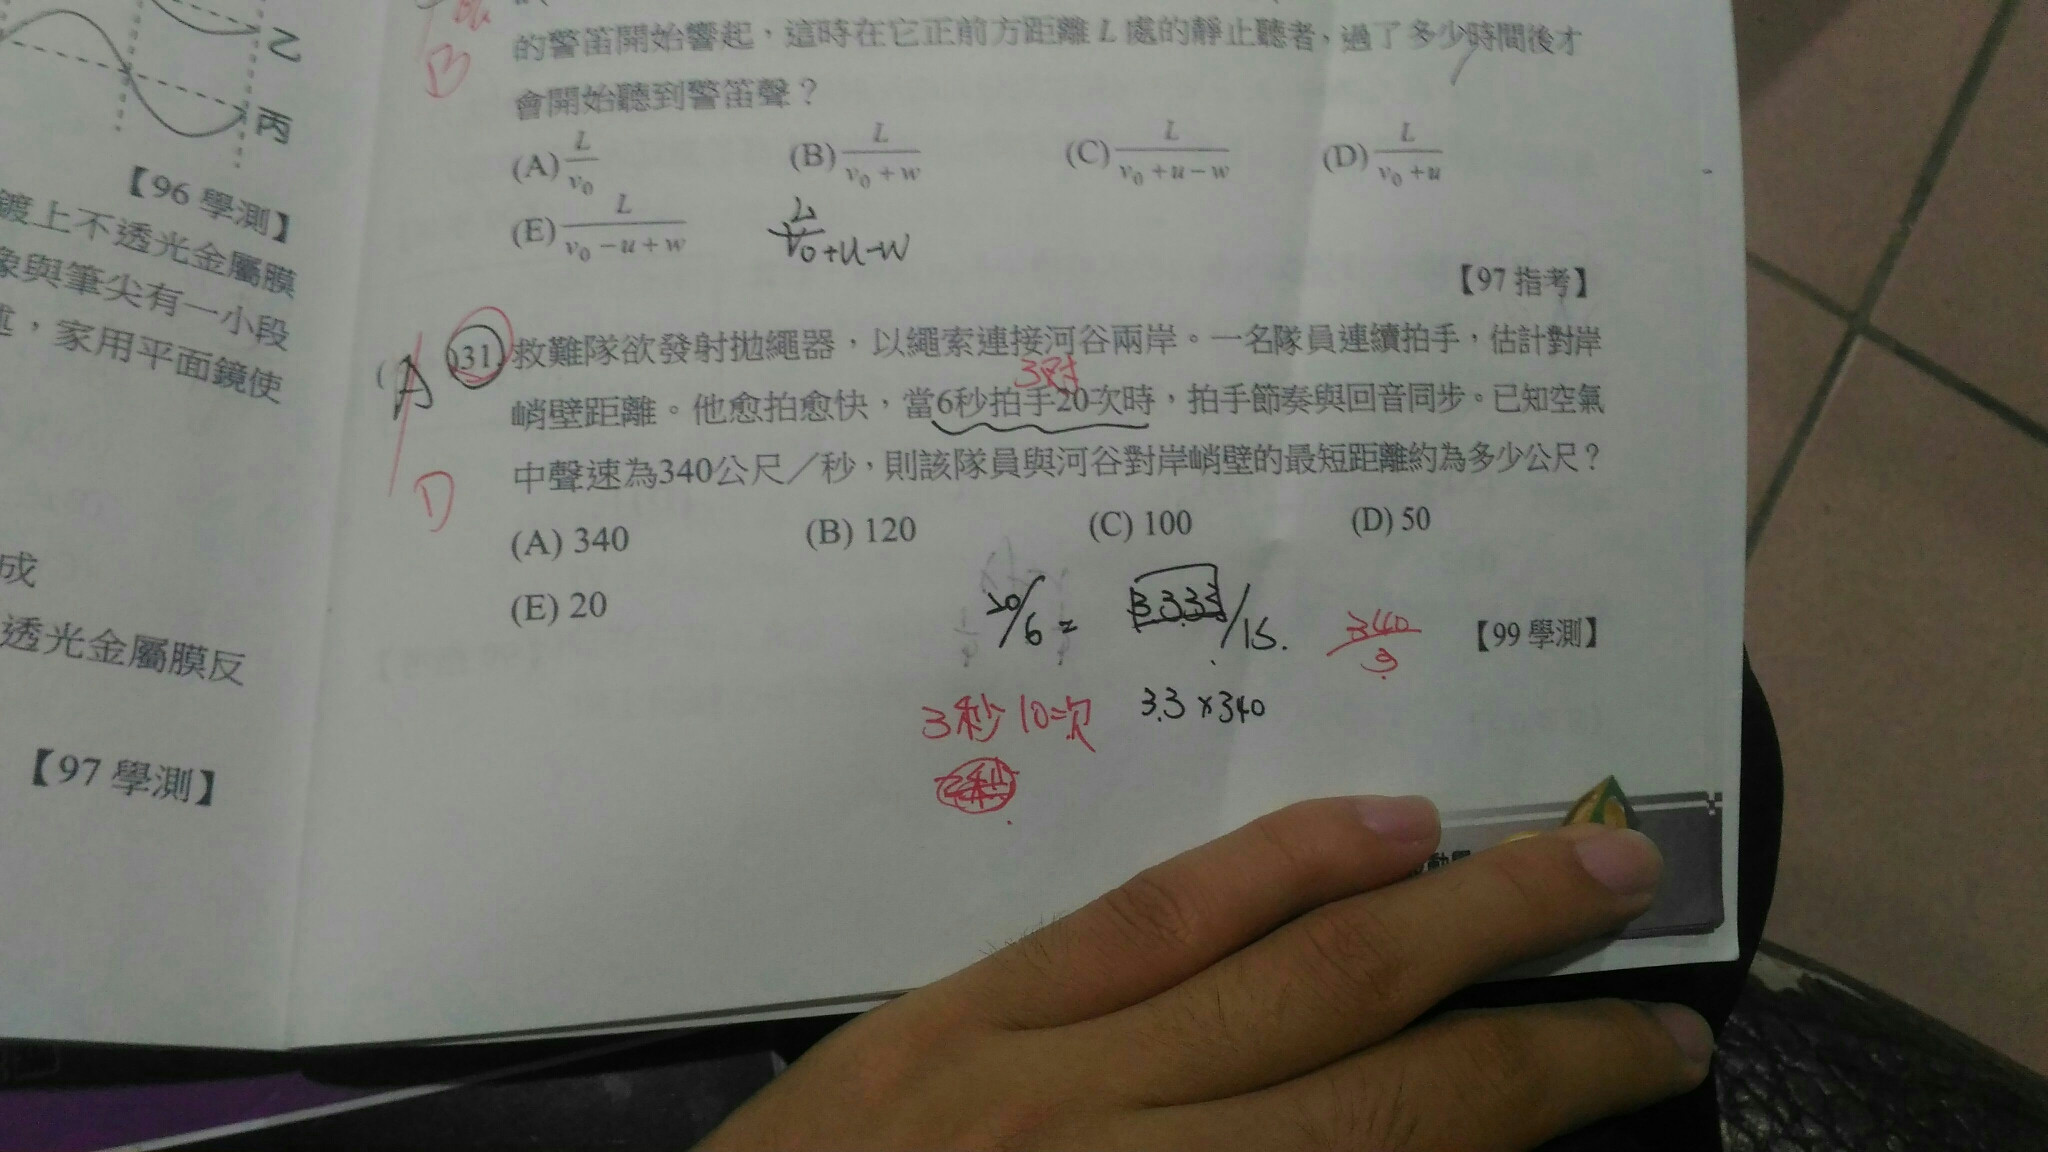 乙
丙
【96 學測】
鍍上不透光金屬膜
像與筆尖有一小段
，家用平面鏡使
成
透光金屬膜反
【97 學測】
B
的警笛開始響起，這時在它正前方距離 L 處的靜止聽者，過了多少時間後才
會開始聽到警笛聲？
(A) L/v₀ (B) L/(v₀+w) (C) L/(v₀+u−w) (D) L/(v₀+u)
(E) L/(v₀−u+w) L/(v₀+u−w)
【97 指考】
A 31. 救難隊欲發射拋繩器，以繩索連接河谷兩岸。一名隊員連續拍手，估計對岸
峭壁距離。他愈拍愈快，當6秒拍手20次時，拍手節奏與回音同步。已知空氣
中聲速為340公尺／秒，則該隊員與河谷對岸峭壁的最短距離約為多少公尺？
D
(A) 340 (B) 120 (C) 100 (D) 50
(E) 20
20/6 = 3.333/1s. 340/3 【99 學測】
3秒10次 3.3×340
2秒